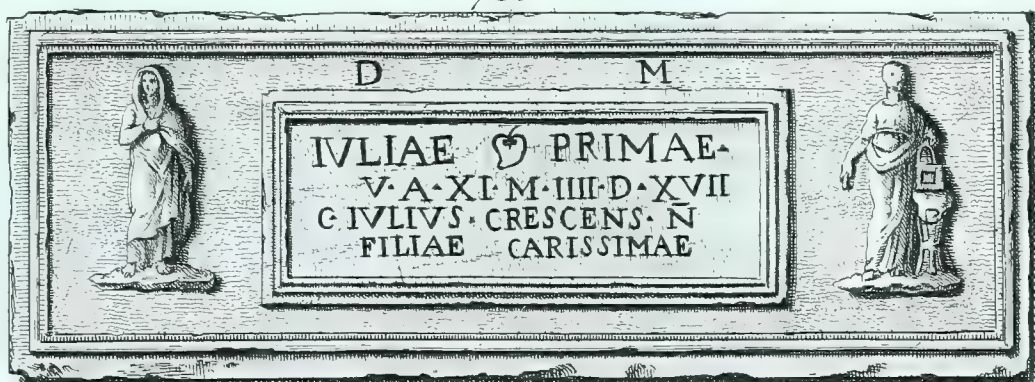 D M
IVLIAE ❦ PRIMAE·
V·A·XI·M·IIII·D·XVII
C·IVLIVS·CRESCENS·N̄
FILIAE CARISSIMAE